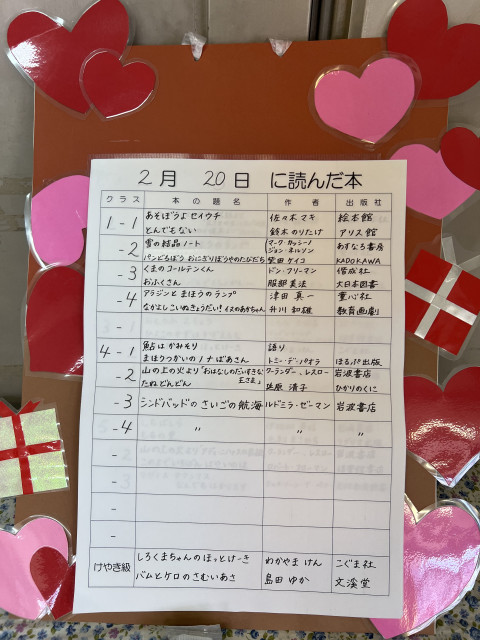 2月 20日 に読んだ本
クラス 本の題名 作者 出版社
1-1 あそぼうよセイウチ 佐々木マキ 絵本館
とんでもない 鈴木のりたけ アリス館
-2 雪の結晶ノート マーク・カッシーノ ジョン・ネルソン あすなろ書房
パンどろぼう おにぎりぼうやのたびだち 柴田ケイコ KADOKAWA
-3 くまのコールテンくん ドン・フリーマン 偕成社
おふくさん 服部美法 大日本図書
-4 アラジンと まほうのランプ 津田真一 童心社
なかよしこいぬきょうだい!イヌのあかちゃん 井川和雄 教育画劇
4-1 鮎はかみそり 語り
まほうつかいのノナばあさん トミー・デ・パオラ ほるぷ出版
-2 山の上の火より「おはなしのだいすきな王さま」 クーランダー、レスロー 岩波書店
たねどんどん 延原清子 ひかりのくに
-3 シンドバッドのさいごの航海 ルドミラ・ゼーマン 岩波書店
-4 〃 〃 〃
-
-
-
-
けやき級 しろくまちゃんのほっとけーき わかやまけん こぐま社
バムとケロのさむいあさ 島田ゆか 文溪堂